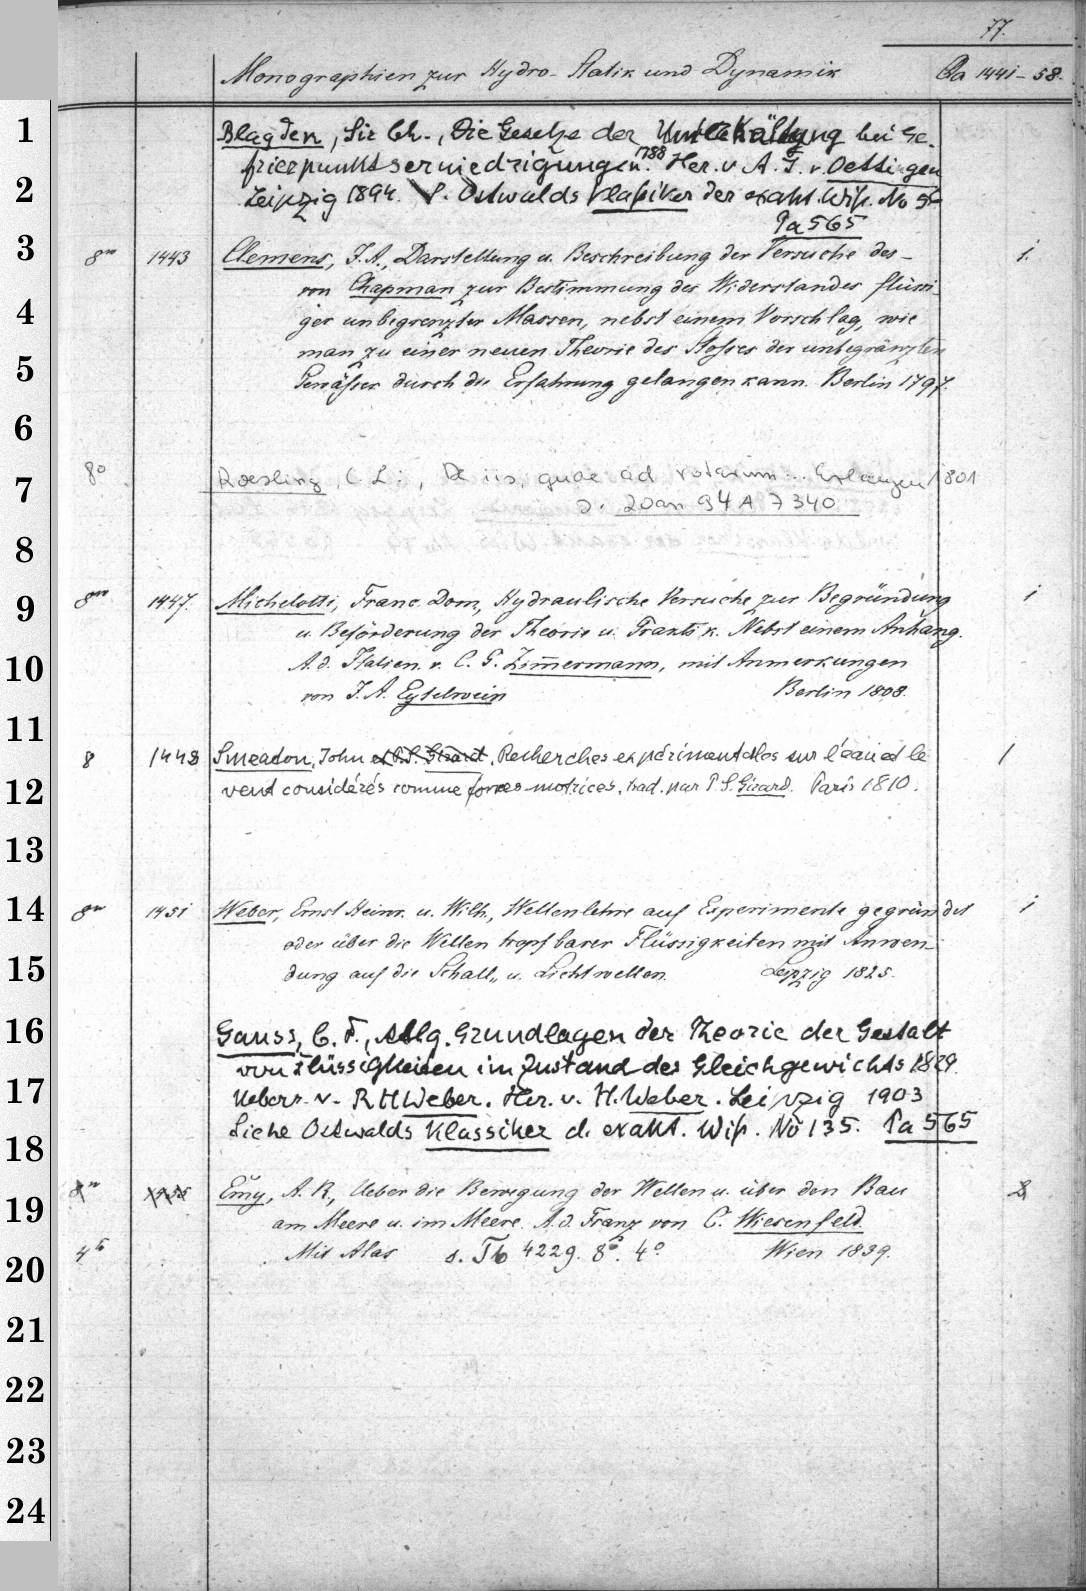 77.
Monographien zur Hydro-Statik und Dynamik Pa 1441-58.
1
Blagden, Sir Ch., Die Gesetze der Unterkältung bei Ge-
frierpunktserniedrigungen. 1788 Her. v. A. J. v. Oettingen
2
Leipzig 1894. S. Ostwalds Klaßiker der exakt. Wiß. No 56
Pa 565
3
8vo 1443 Clemens, J. A., Darstellung u. Beschreibung der Versuche des- 1.
von Chapman zur Bestimmung des Widerstandes flüssi-
4
ger unbegrenzter Massen, nebst einem Vorschlag, wie
man zu einer neuen Theorie des Stoßes der unbegränzten
5
Gewäßer durch die Erfahrung gelangen kann. Berlin 1797.
6
8o Roesling, C. L., De iis, quae ad rotarum... Erlangen 1801
7
s. 20an 94 A 7340
8
9
8vo 1447. Michelotti, Franc. Dom., Hydraulische Versuche zur Begründung 1
u. Beförderung der Theorie u. Praktik. Nebst einem Anhang.
10
A. d. Italien. v. C. G. Zim̅ermann, mit Anmerkungen
von J. A. Eytelwein Berlin 1808.
11
8 1448 Smeaton, John et P. S. Girard, Recherches expérimentales sur l'eau et le 1
12
vent considérés comme forces motrices, trad. par P. S. Girard. Paris 1810.
13
14
8vo 1451 Weber, Ernst Heinr. u. Wilh., Wellenlehre auf Experimente gegründet 1
oder über die Wellen tropfbarer Flüssigkeiten mit Anwen-
15
dung auf die Schall- u. Lichtwellen. Leipzig 1825.
16
Gauss, C. F., Allg. Grundlagen der Theorie der Gestalt
von Flüssigkeiten im Zustand des Gleichgewichts 1829.
17
Uebers. v. R H Weber. Her. v. H. Weber. Leipzig 1903
Siehe Ostwalds Klassiker d. exakt. Wiß. No 135. Pa 565
18
19
8vo Emy, A. R., Ueber die Bewegung der Wellen u. über den Bau 2
am Meere u. im Meere. A. d. Franz von C. Wiesenfeld.
20
4to Mit Atlas s. Tb 4229. 8o. 4o Wien 1839.
21
22
23
24